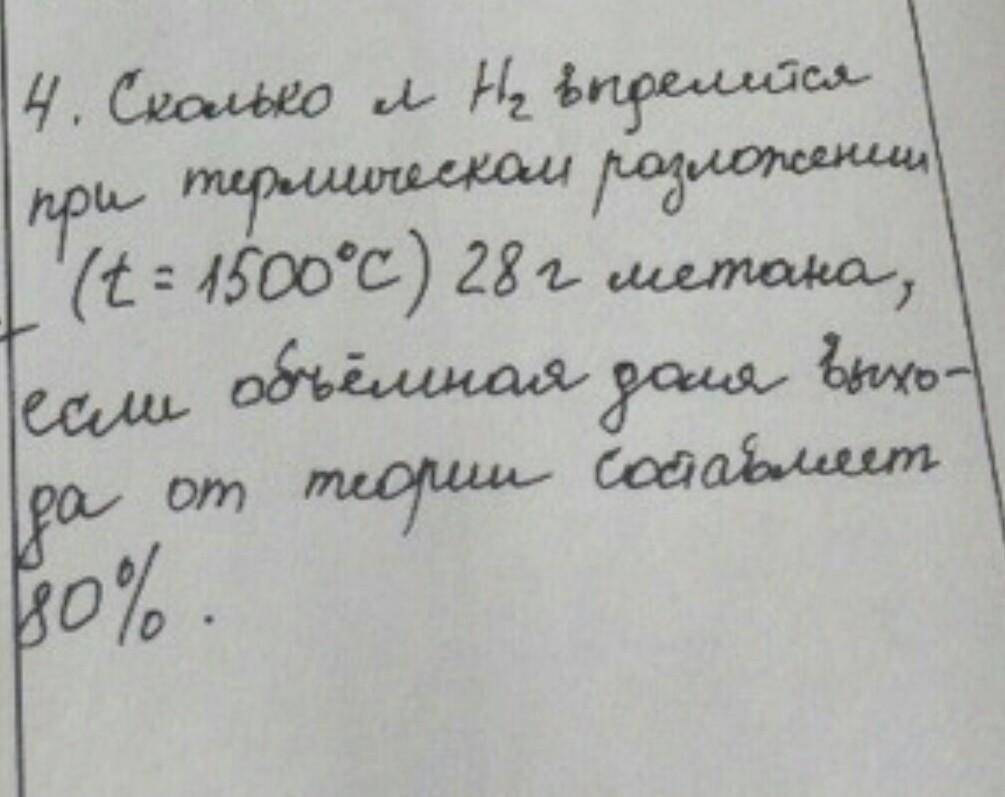 4. Сколько л H₂ выделится
при термическом разложении
(t = 1500°C) 28 г метана,
если объёмная доля выхо-
да от теории составляет
80%.